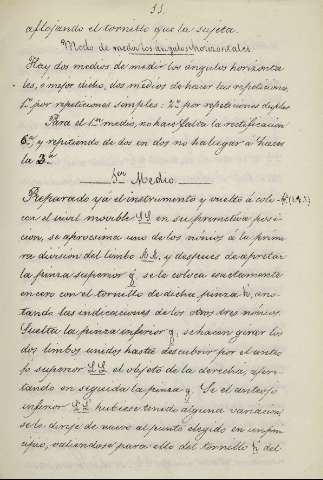 33
aflojando el tornillo que la sujeta.
Modo de medir los angulos horizontales
Hay dos medios de medir los angulos horizonta-
les, ó mejor dicho, dos medios de hacer las repeticiones,
1º por repeticiones simples: 2º por repeticiones dobles
Para el 1er medio, no hace falta la rectificacion
6ª, y repitiendo de dos en dos no ha lugar á hacer
la 3ª
1er Medio
Preparado yá el instrumento y vuelto á colo-
car el nivel movible LL en su primitiva posi-
cion, se aproxima uno de los nónios á la prime-
ra division del limbo, y despues de apretar
la pinza superior g, se lo coloca exactamente
en cero con el tornillo de dicha pinza, ano-
tando las indicaciones de los otros tres nónios
Suelta la pinza inferior g, se hacen girar los
dos limbos unidos hasta descubrir por el anteo-
jo superior LL el objeto de la derecha, apre-
tando en seguida la pinza g. Si el anteojo
inferior hubiese tenido alguna variacion
se lo dirije de nuevo al punto elegido en un prin-
cipio, valiendose para ello del tornillo h del